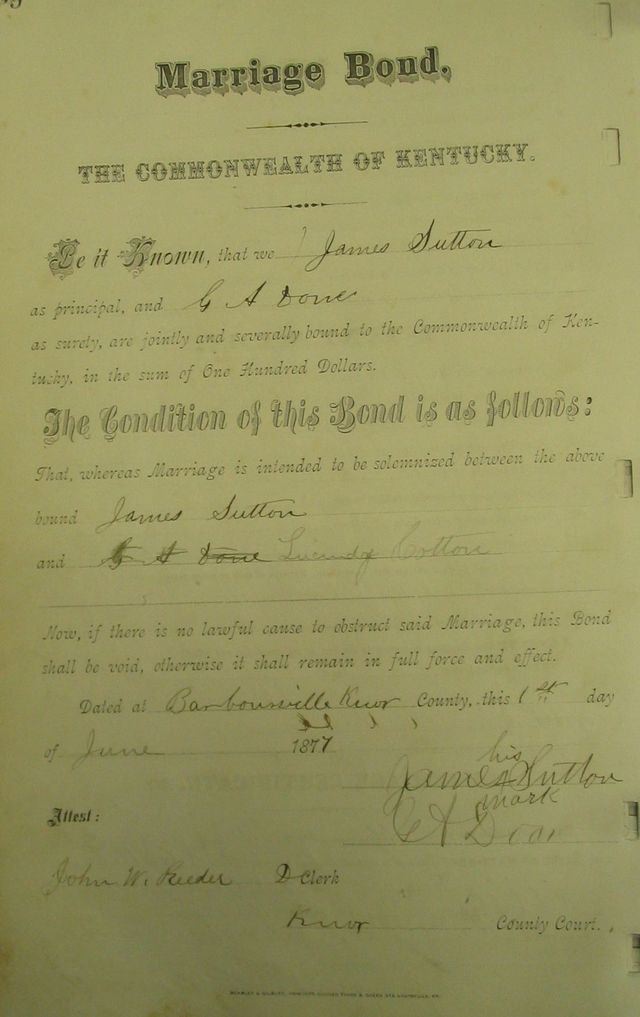 Marriage Bond.
THE COMMONWEALTH OF KENTUCKY.
Be it Known, that we James Sutton
as principal, and G A Done
as surety, are jointly and severally bound to the Commonwealth of Ken-
tucky, in the sum of One Hundred Dollars.
The Condition of this Bond is as follows:
That, whereas Marriage is intended to be solemnized between the above
bound James Sutton
and G A Done Lucindy Cotton
Now, if there is no lawful cause to obstruct said Marriage, this Bond
shall be void, otherwise it shall remain in full force and effect.
Dated at Barboursville Knox County, this 1st day
of June 1877
his
James Sutton
mark
Attest: G A
John W. Reeder D Clerk
Knox County Court.